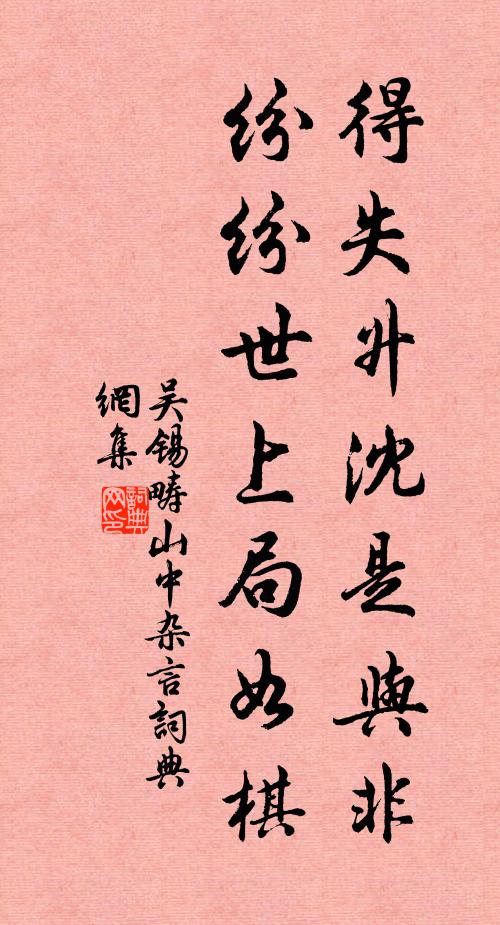 得失升沈是與非
紛紛世上局如棋
吴錫畴山中杂言詞典
網集
詞典
网印